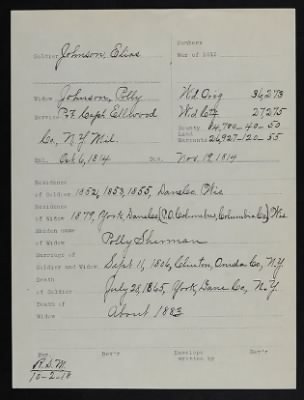 Numbers
Soldier Johnson, Elias War of 1812
Widow Johnson, Polly Wd Orig 36,273
Service Pvt Capt Ellwood Wd Ctf 27275
Co, N.Y. Mil. Bounty Land Warrants 84,700-40-50
26,927-120-55
Enl. Oct 6, 1814 Dis. Nov. 12, 1814
Residence
of Soldier 1852, 1853, 1855, Dane Co. Wis.
Residence
of Widow 1879, York, Dane Co (P.O. Columbus, Columbia Co) Wis
Maiden name
of Widow Polly Sherman
Marriage of
Soldier and Widow Sept 11, 1806, Clinton, Oneida Co, N.Y.
Death
of Soldier July 28, 1865, York, Dane Co, N.Y.
Death of
Widow About 1883
Rev'r Envelope
written by Rev'r
R.S.M.
10-2-18